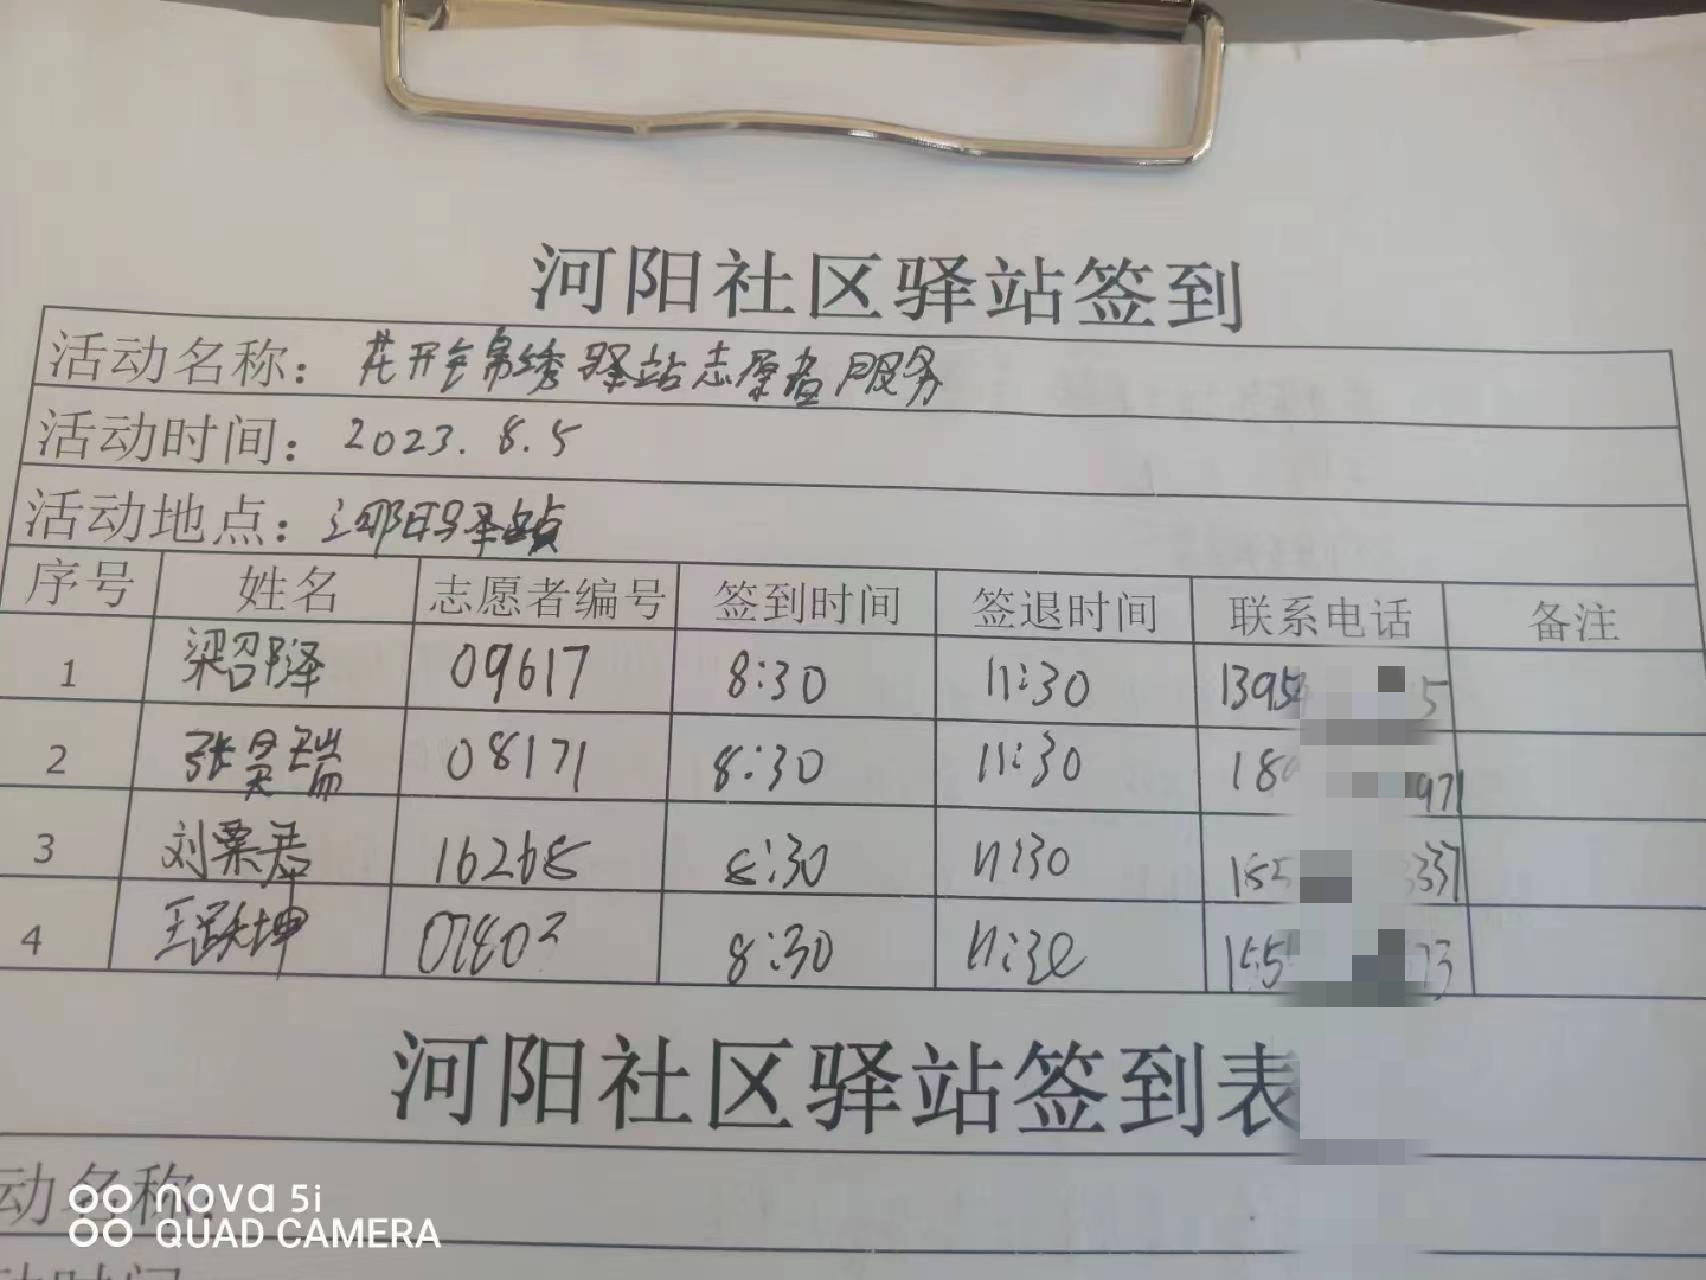 河阳社区驿站签到
活动名称：花开锦绣驿站志愿者服务
活动时间：2023.8.5
活动地点：河阳驿站
序号 姓名 志愿者编号 签到时间 签退时间 联系电话 备注
1 梁 泽 09617 8:30 11:30 1395 5
2 张昊瑞 08171 8:30 11:30 18 971
3 刘栗君 16268 8:30 11:30 152 3337
4 王跃坤 07802 8:30 11:30 155 73
河阳社区驿站签到表
动名称：
nova 5i
QUAD CAMERA
动时间